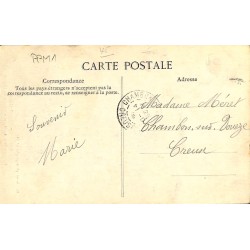 A7M1
CARTE POSTALE
Correspondance
Adresse
Tous les pays étrangers n'acceptent pas la
correspondance au recto, se renseigner à la poste.
Souvenir
Marie
Madame
Chambon-sur-Voueize
Creuse